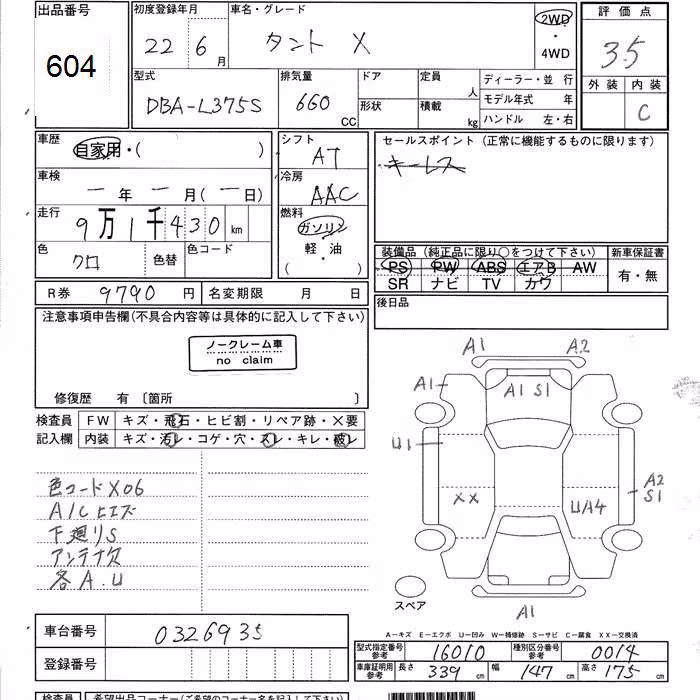 出品番号
604
初度登録年月
22 6 月
車名・グレード
タント X
2WD
・
4WD
評価点
3.5
外装 内装
C
型式
DBA-L375S
排気量
660 CC
ドア
形状
定員 人
積載 kg
ディーラー・並 行
モデル年式 年
ハンドル 左・右
車歴
自家用・( )
車検
一 年 一 月(一 日)
走行
9万1千430 km
色
クロ
色替
色コード
シフト
AT
冷房
AAC
燃料
ガソリン
軽・油
( )
セールスポイント(正常に機能するものに限ります)
キーレス
装備品(純正品に限り○をつけて下さい)
PS PW ABS エアB AW
SR ナビ TV カワ
新車保証書
有・無
R券 9790 円
名変期限 月 日
後日品
注意事項申告欄(不具合内容等は具体的に記入して下さい)
ノークレーム車
no claim
修復歴 有 〔箇所 〕
検査員
記入欄
FW キズ・飛石・ヒビ割・リペア跡・X要
内装 キズ・汚レ・コゲ・穴・スレ・キレ・破レ
色コードX06
A/Cヒエズ
下廻りS
アンテナ欠
各A.U
A1 A2
A1
A1 S1
U1
XX
UA4
A2
S1
A1
スペア
A－キズ E－エクボ U－凹み W－補修跡 S－サビ C－腐食 XX－交換済
車台番号 0326935
登録番号
型式指定番号
参考
16010
種別区分番号
参考
0014
車庫証明用
参考
長さ 339 cm
幅 147 cm
高さ 175 cm
検査員
希望出品コーナー(ご希望のコーナー名を記入下さい)